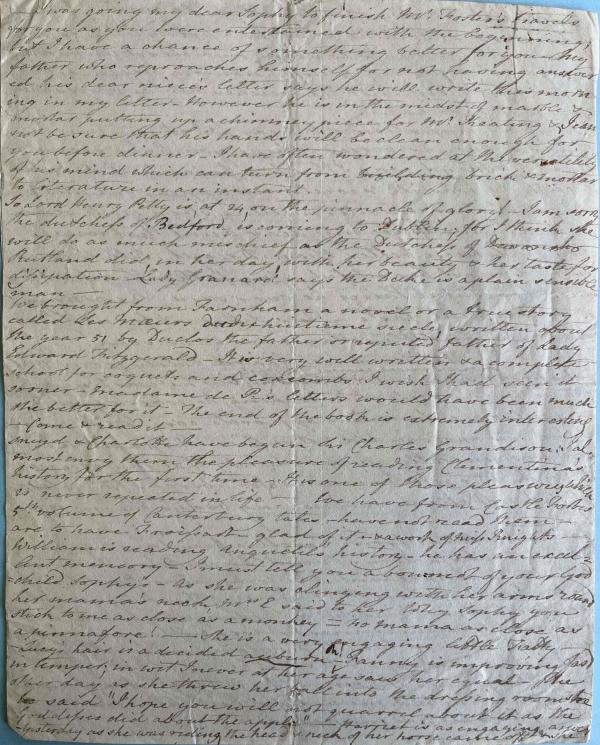 I was going my dear Sophy to finish Mr. Foster's Travels
for you as you were entertained with the beginning
but I have a chance of something better for you - My
father who reproaches himself for not having answer
ed his dear niece's letter says he will write this morn
ing in my letter - However he is in the midst of marble &
mortar putting up a chimney piece for Mr. Keating & I can
not be sure that his hands will be clean enough for
you before dinner - I have often wondered at the versatility
of his mind which can turn from building brick & mortar
to literature in an instant
So Lord Henry Petty is at 24 on the pinnacle of glory! - I am sorry
the dutchess of Bedford is coming to Dublin; for I think she
will do as much mischief as the Dutchess of
Rutland did in her day with her beauty & her taste for
dissipation - Lady Granard says the Duke is a plain sensible
man -
We brought from Farnham a novel or a true story
called Les Mœurs du dixhuitieme siecle, written about
the year 51 by Duclos the father or reputed father of Lady
Edward Fitzgerald - It is very well written & a complete
school for coquets and coxcombs I wish I had seen it
sooner - Madame de P's letters would have been much
the better for it - The end of the book is extremely interesting
- Come & read it -
Sneyd & Charlotte have begun Sir Charles Grandison: I al
most envy them the pleasure of reading Clementina's
history for the first time - It is one of those pleasures which
is never repeated in life - We have from Castle Forbes
5th volume of Canterbury tales - have not read them -
are to have Froissart - glad of it - & a work of Miss Knights -
William is reading Anquetil's history - he has an excel=
lent memory - I must tell you a bon mot of your God
child Sophy - - As she was clinging with her arms round
her mama's neck, Mrs E said to her Why Sophy you
stick to me as close as a monkey = no mama as close as
a pinnafore! - She is a very engaging little Fatty -
Lucy's hair is a decided auburn - Fanny is improving fast
in temper; in wit I never at her age saw her equal - The
other day as she threw her ball into the dressing room
she said "I hope you will not quarrel about it as the
Goddesses did about the apple" - Harriet is as engaging as ever
yesterday as she was riding the head of her horse came off & she